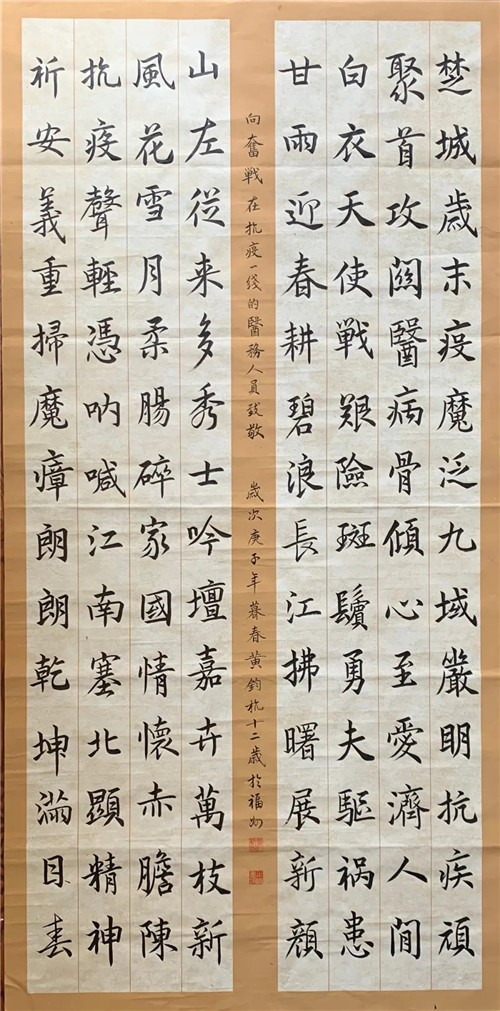 楚城歳末疫魔泛九域嚴明抗疾頑
聚首攻關醫病骨傾心至愛濟人間
白衣天使戰艱險斑鬢勇夫驅禍患
甘雨迎春耕碧浪長江拂曙展新顔
向奮戦在抗疫一线的醫務人員致敬
歲次庚子年暮春黄鈞杭十二歲於福州
山左從来多秀士吟壇嘉卉萬枝新
風花雪月柔腸碎家國情懷赤膽陳
抗疫聲輕憑吶喊江南塞北顯精神
祈安義重掃魔瘴朗朗乾坤滿目春